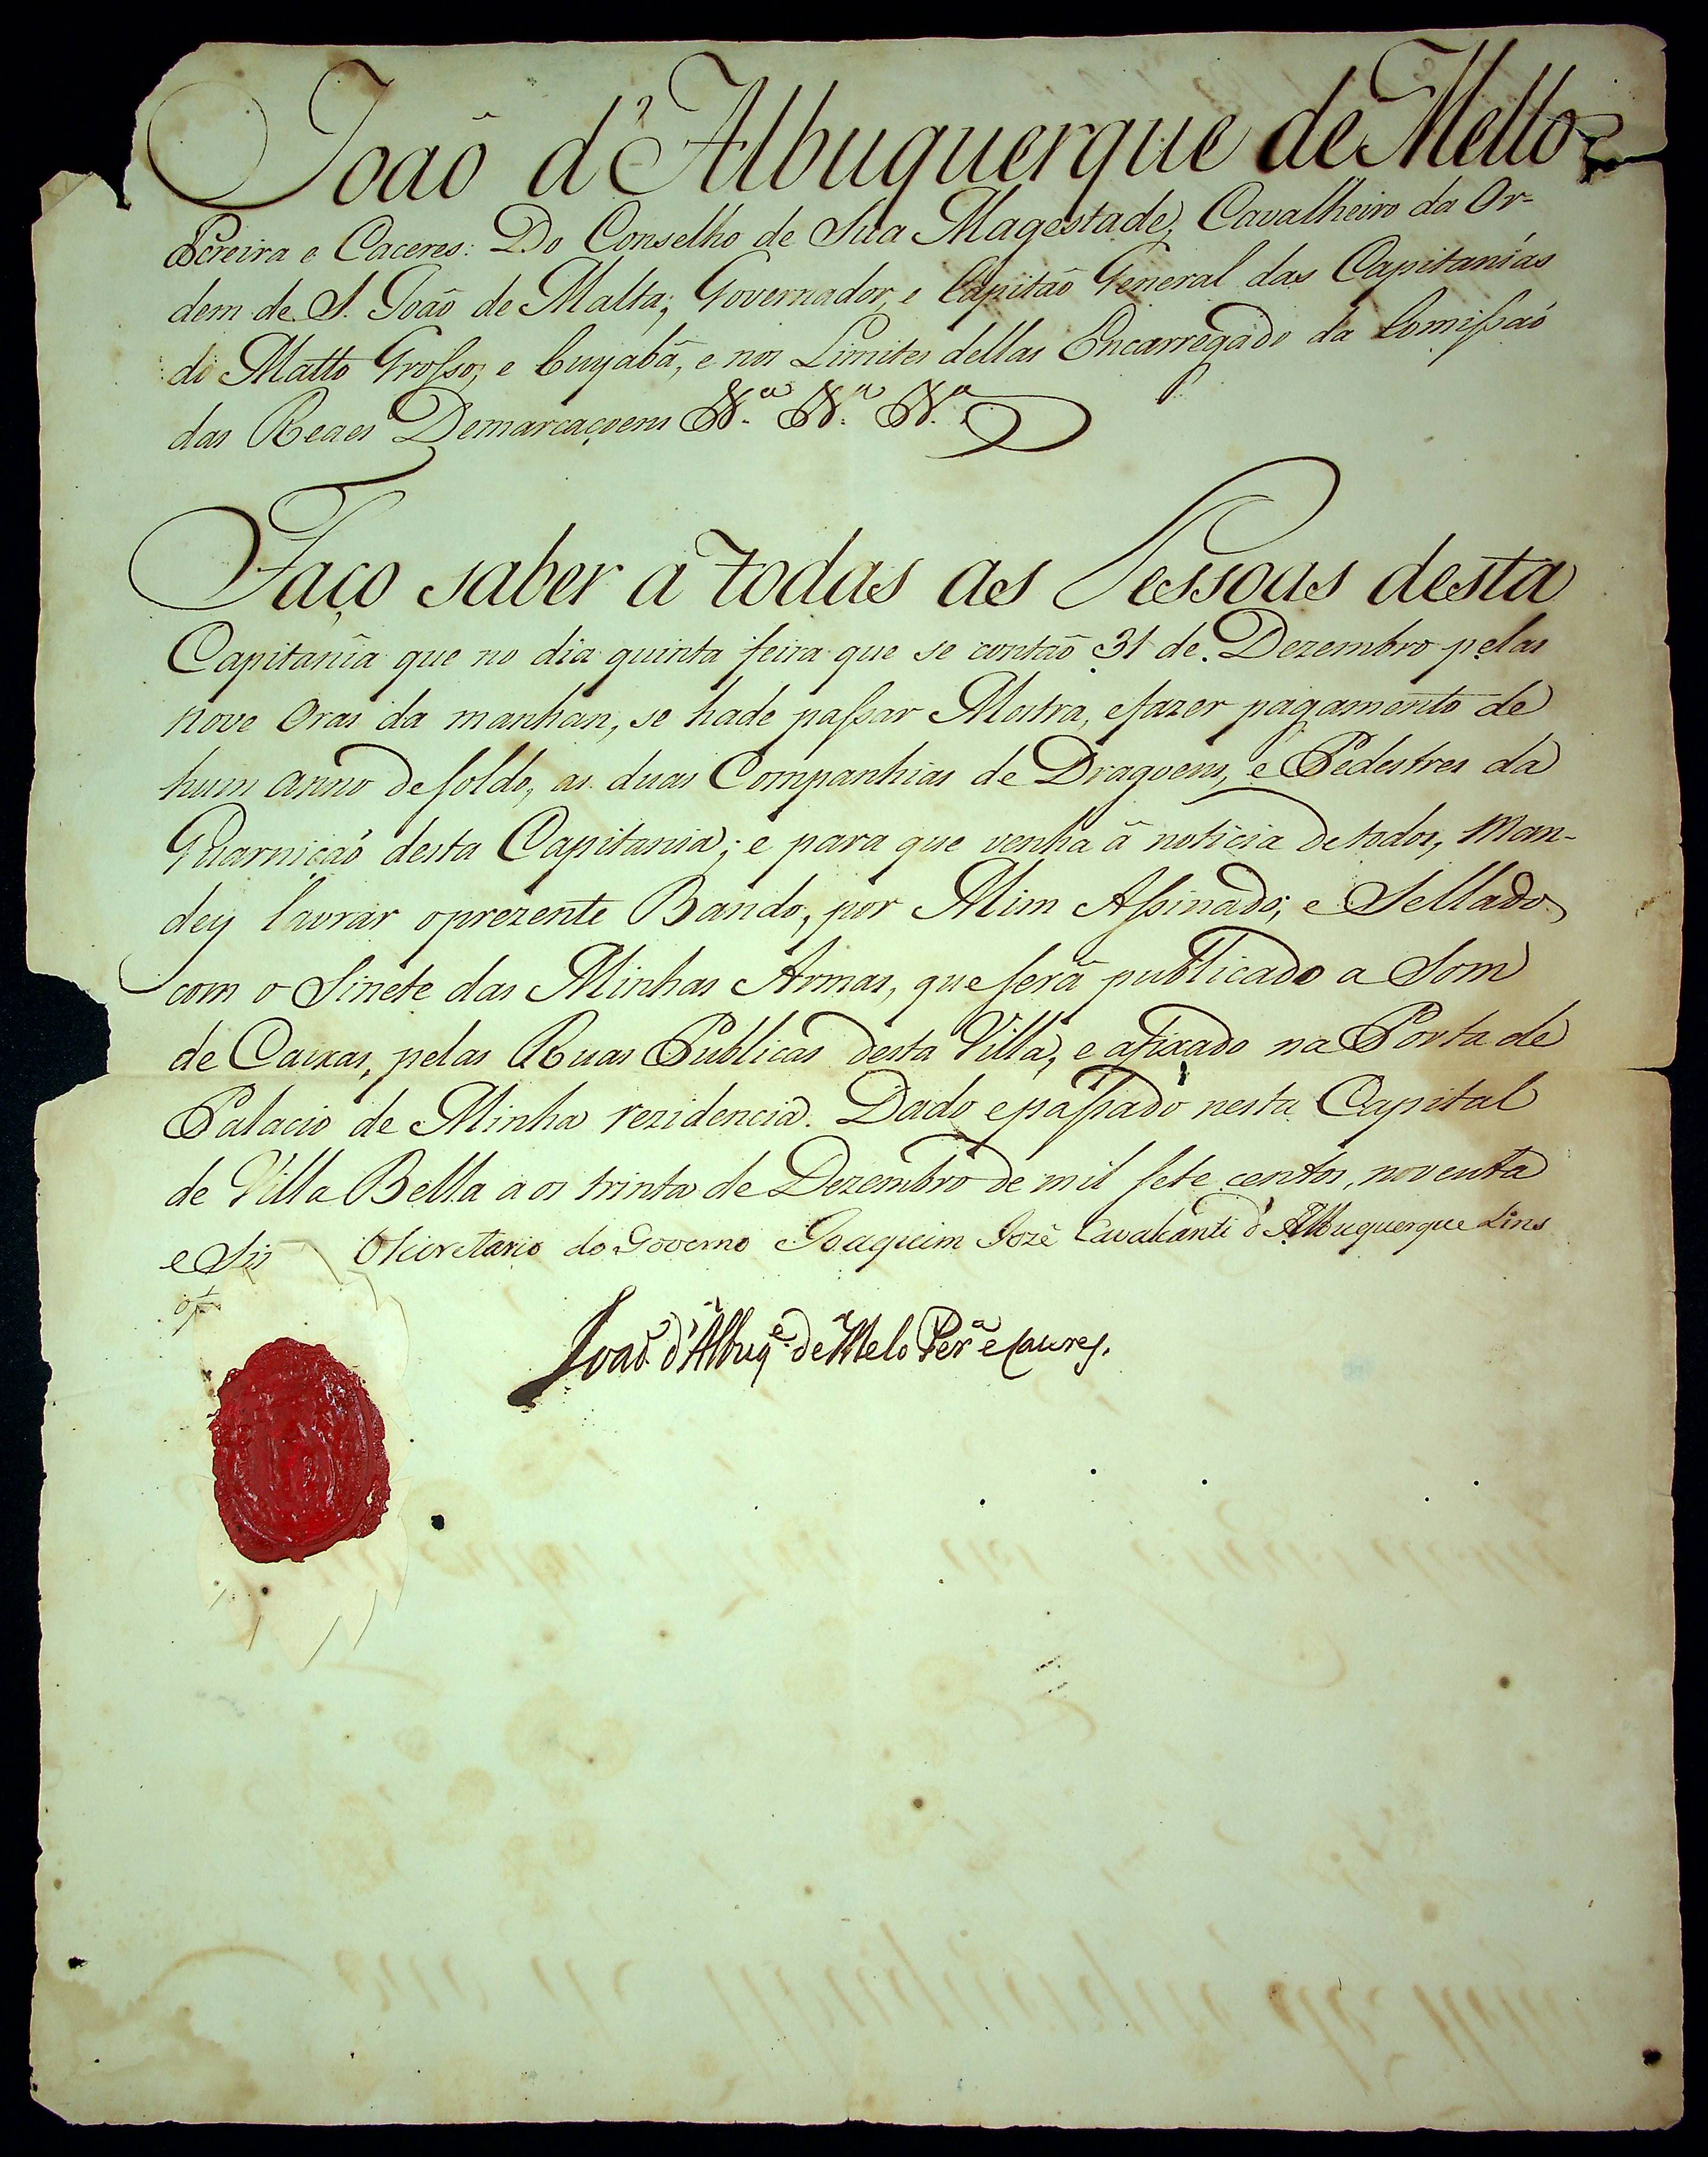 Joaõ d'Albuquerque de Mello
Pereira e Caceres: Do Conselho de Sua Magestade, Cavalheiro da Or-
dem de S. Joaõ de Malta; Governador, e Capitaõ General das Capitanías
do Matto Grosso, e Cuyabâ, e nos Limites dellas Encarregado da Comissaõ
das Reaes Demarcaçoens &ª. &ª. &ª.
Faço saber a todas as Pessoas desta
Capitanîa que no dia quinta feira que se contaõ 31 de Dezembro pelas
nove Oras da manhan, se hade passar Mostra, efazer pagamento de
hum anno desoldo, as duas Companhias de Dragoens, e Pedestres da
Guarniçaõ desta Capitania; e para que venha â noticia detodos, Man-
dey lavrar oprezente Bando, por Mim Assinado; e Sellado
com o Sinete das Minhas Armas, queserâ publicado a Som
de Caixas, pelas Ruas Publicas desta Villa, e afixado na Porta de
Palacio de Minha rezidencia. Dado epassado nesta Capital
de Villa Bella aos trinta de Dezembro de mil sete centos, noventa
e Sis OSecretario do Governo Joaquim Jozê Cavalcanti d'Albuquerque Lins
Joaõ d'Albuqᵉ. de Melo Perª e Caceres.